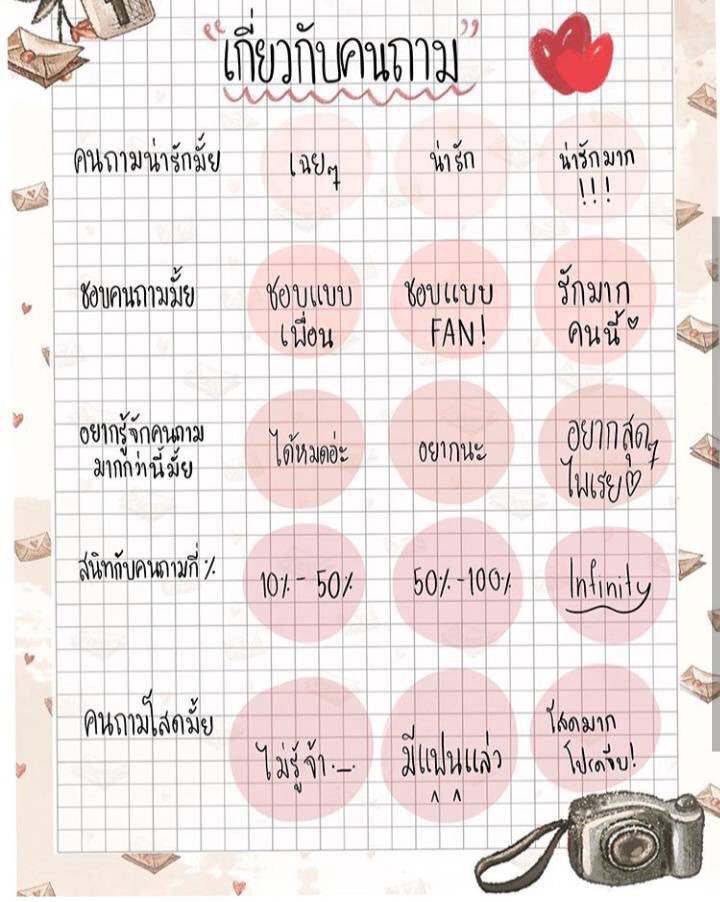 "เกี่ยวกับคนถาม"
คนถามน่ารักมั้ย เฉยๆ น่ารัก น่ารักมาก
!!!
ชอบคนถามมั้ย ชอบแบบ ชอบแบบ รักมาก
เพื่อน FAN! คนนี้♡
อยากรู้จักคนถาม ได้หมดอ่ะ อยากนะ อยากสุดๆ
มากกว่านี้มั้ย ไพเรย♡
สนิทกับคนถามกี่% 10%-50% 50%-100% Infinity
คนถามโสดมั้ย ไม่รู้จ้า ._. มีแฟนแล่ว โสดมาก
^ ^ โปรดจีบ!